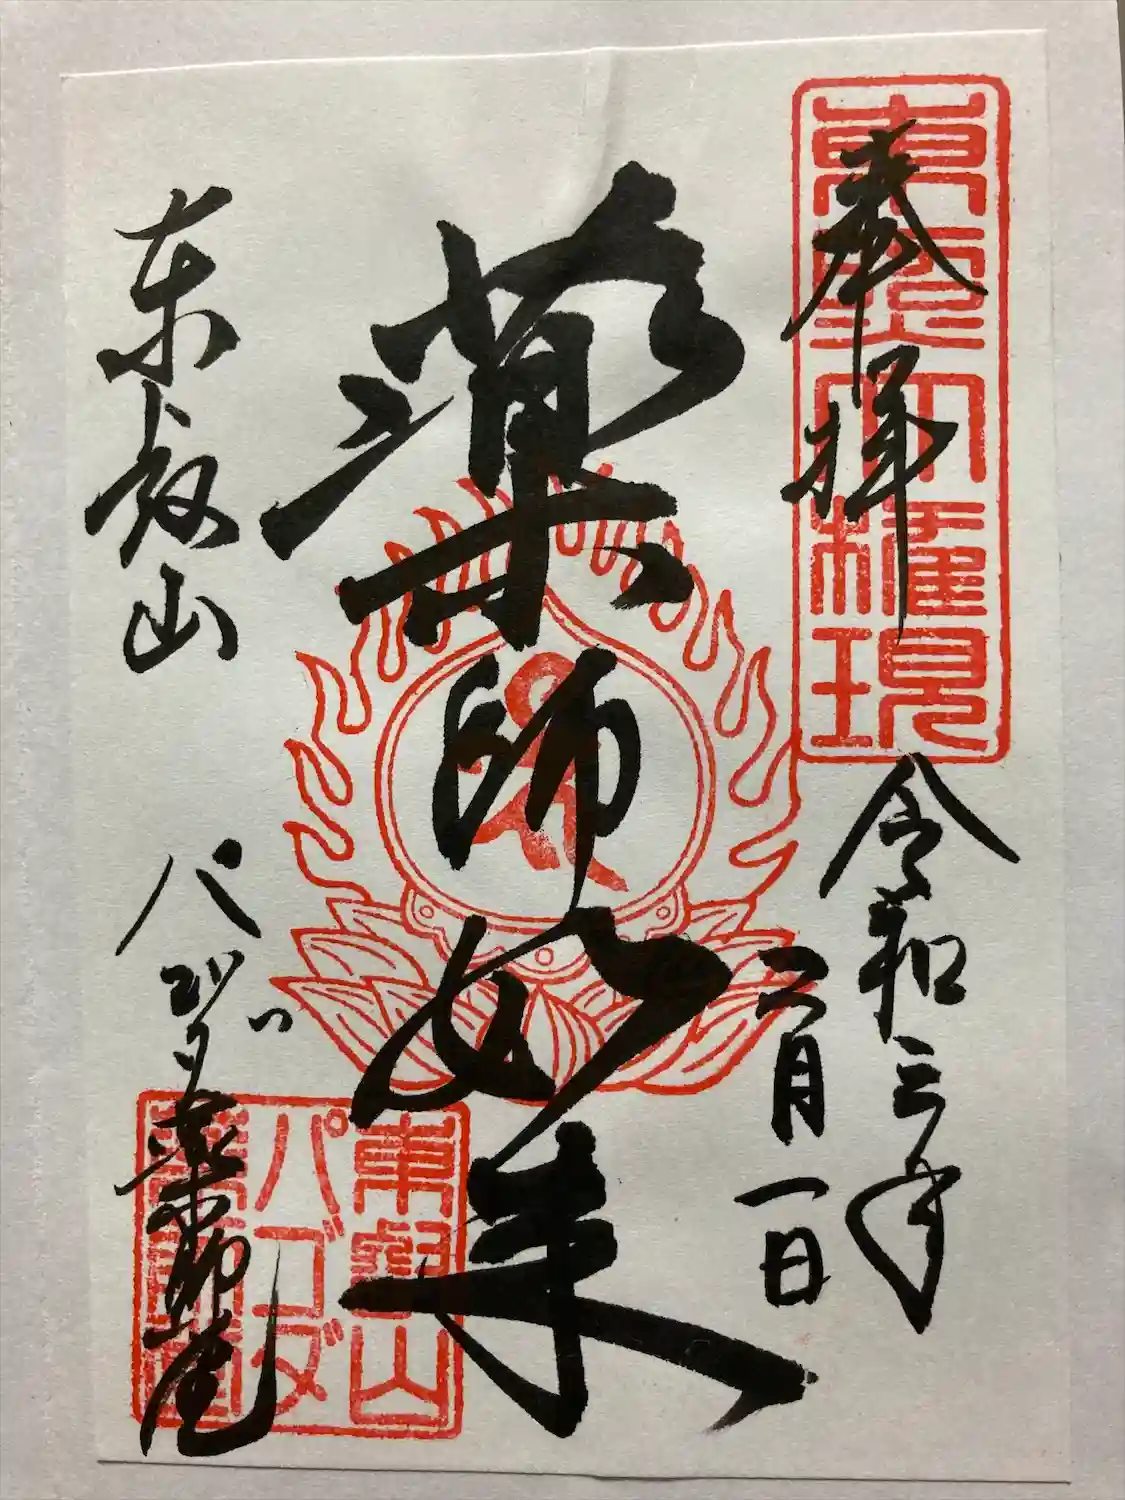 東照大権現
奉拝
令和三年
二月一日
薬師如来
東叡山
パゴダ薬師堂
東叡山
パゴダ
薬師堂